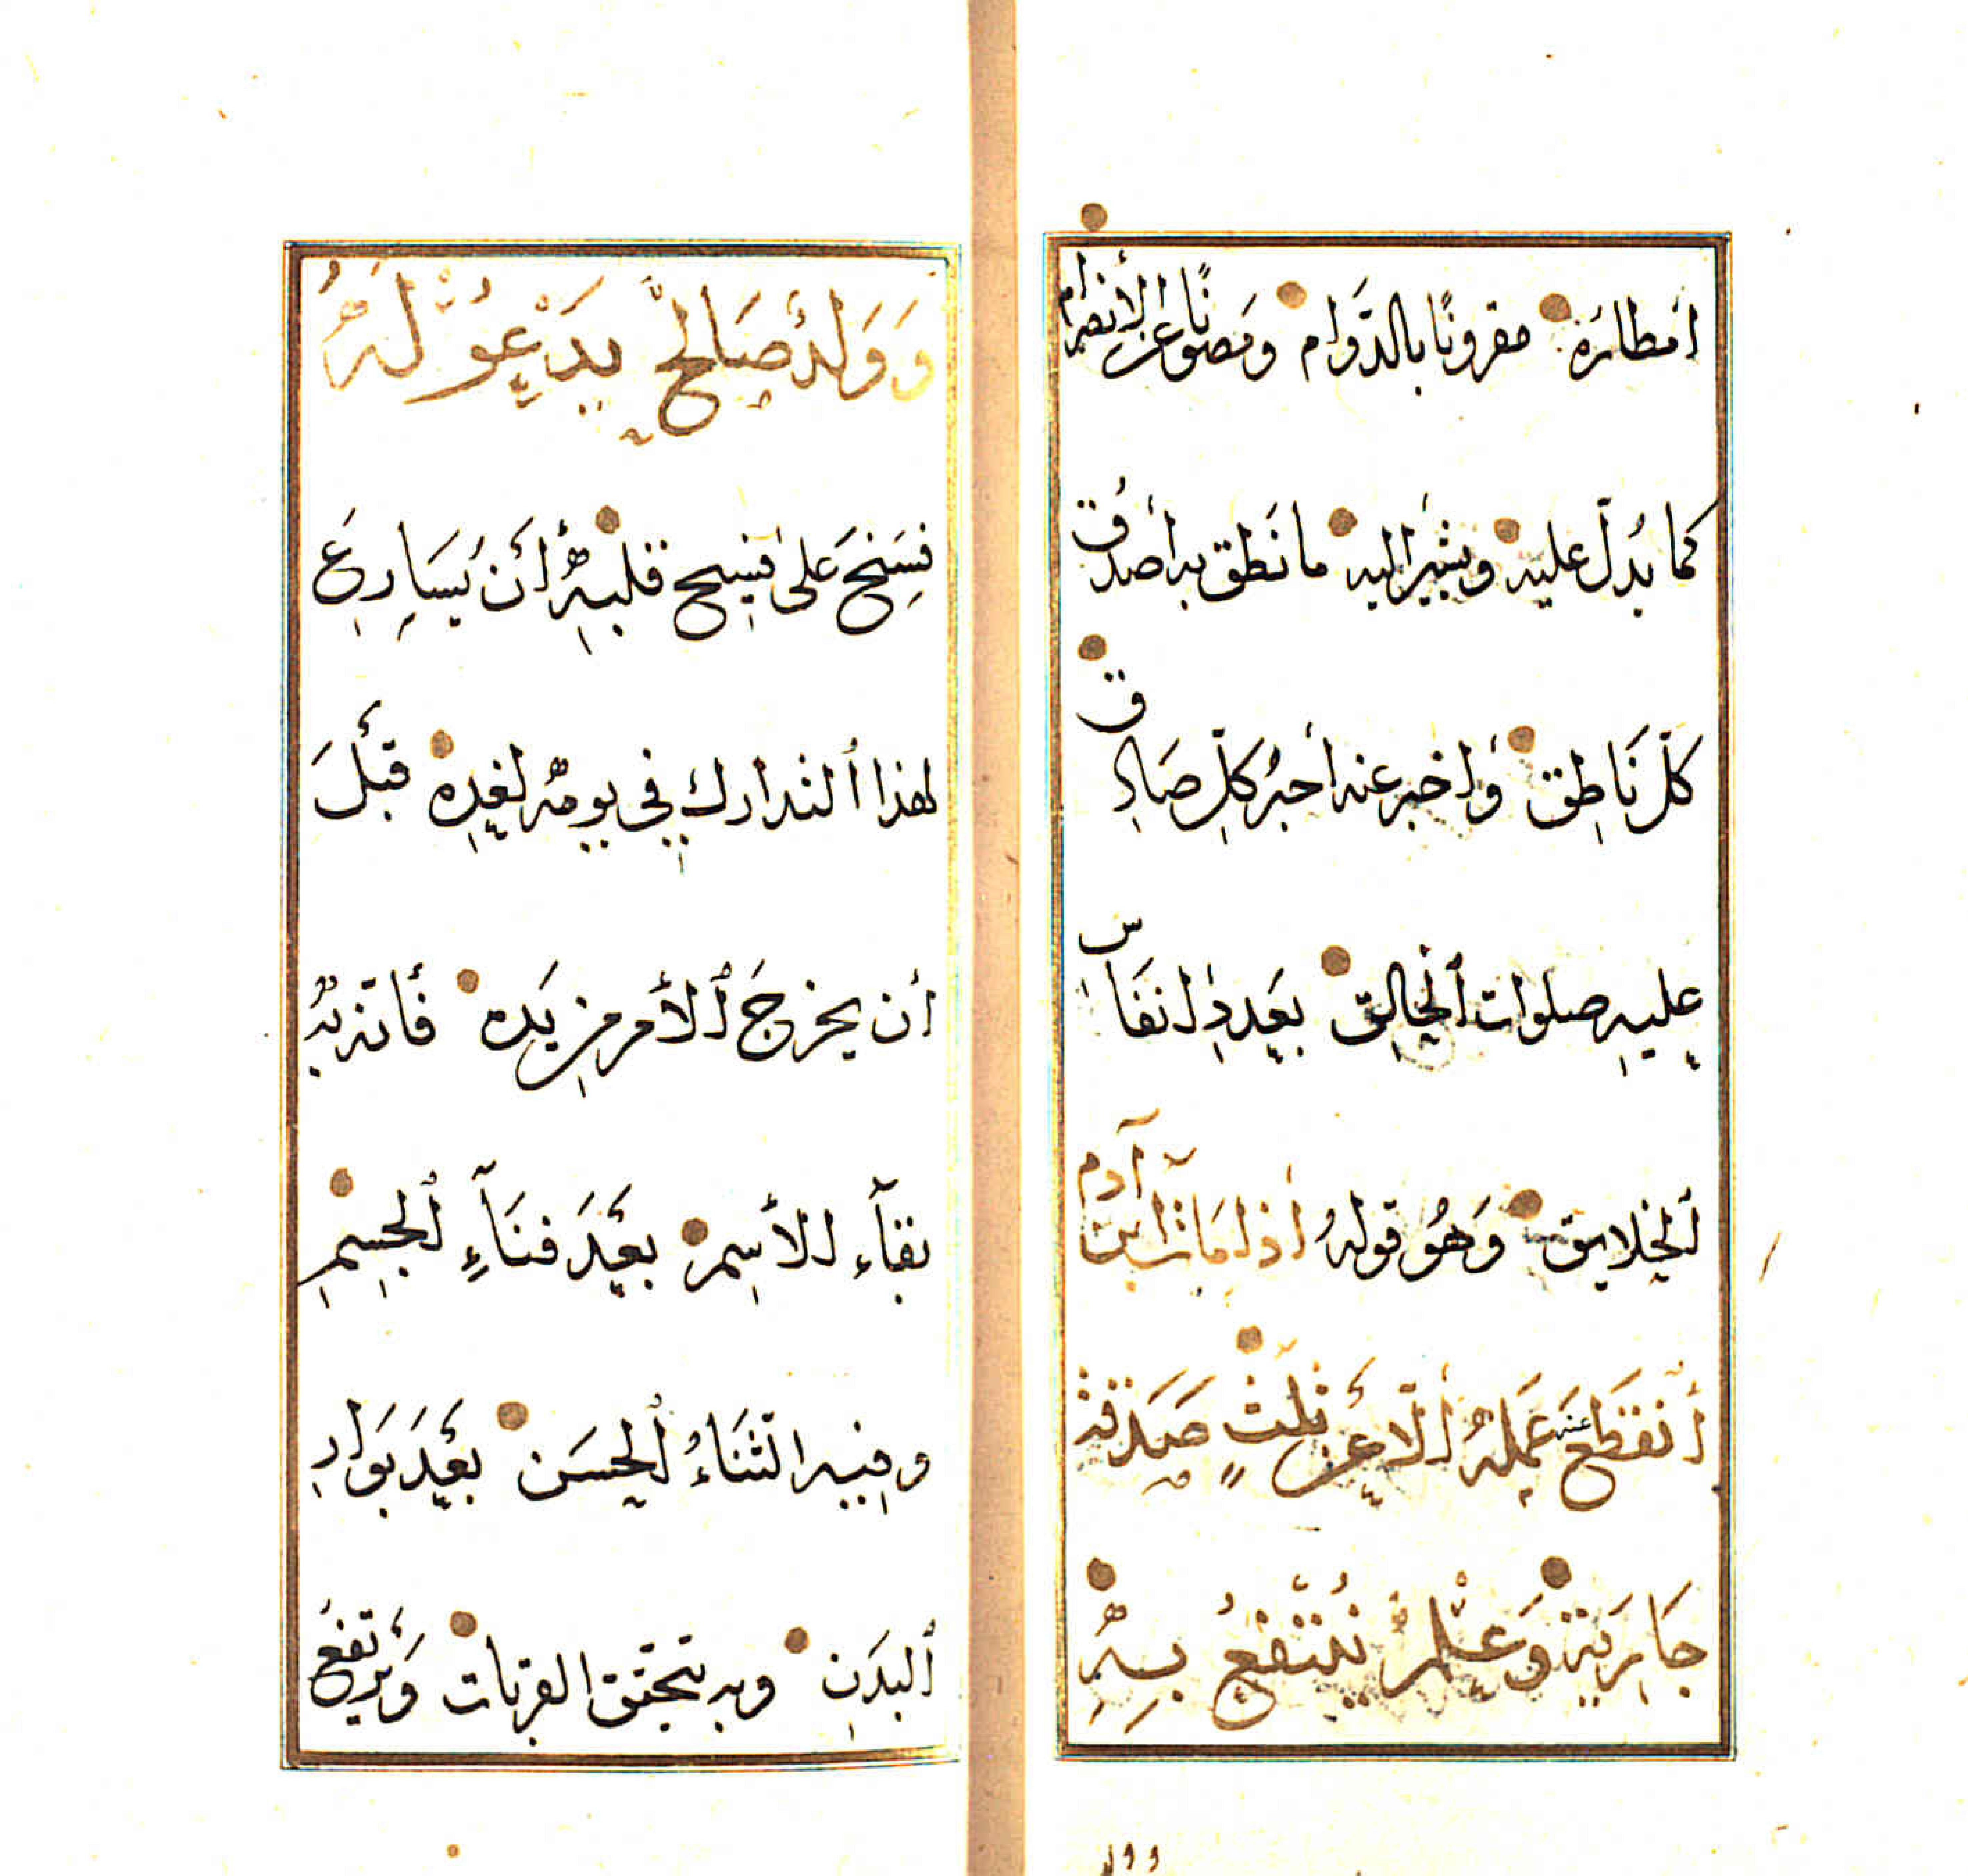 أمطاره مقرونًا بالدَّوام ومَصونًا عن الأنصرام
كما يدُلّ عليه ويشير اليه ما نَطق به أصدَق
كلّ نَاطِق وأخبر عنه أخبرُ كلِّ صَادِق
عليهِ صلوات ٱلخالِق بعَددِ انفَاس
ٱلخلايق وَهُو قولهُ اذا مَات ابن آدم
أنقَطَعَ عنه عَمَلهُ الّا عن ثلثٍ صَدَقة
جَاريَة وَعِلْمٍ يُنْتَفَعُ بِهِ
وول
وَوَلدٍ صَالحٍ يَدْعُو لَهُ
فسَنحَ على فسيح قلبهِ أَن يُسَارِعَ
لهذا ٱلتدارك في يومهِ لغدِه قَبْلَ
أن يخرجَ ٱلأمر من يَده فأنّ به
بقآء الأسِم بعْدَ فنَآءِ ٱلجِسمِ
وفيه الثنَاءُ ٱلحسَن بعْدَ بَوارِ
ٱلبدَنِ وبه تتحقّق القربات وَيرتفعُ